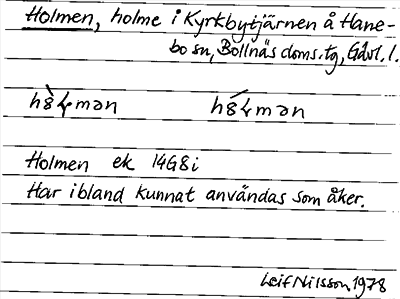 Holmen, holme i Kyrkbytjärnen å Hane-
bo sn, Bollnäs doms. tg, Gävl. l.
Holmen ek 14G8i
Har ibland kunnat användas som åker.
Leif Nilsson 1978